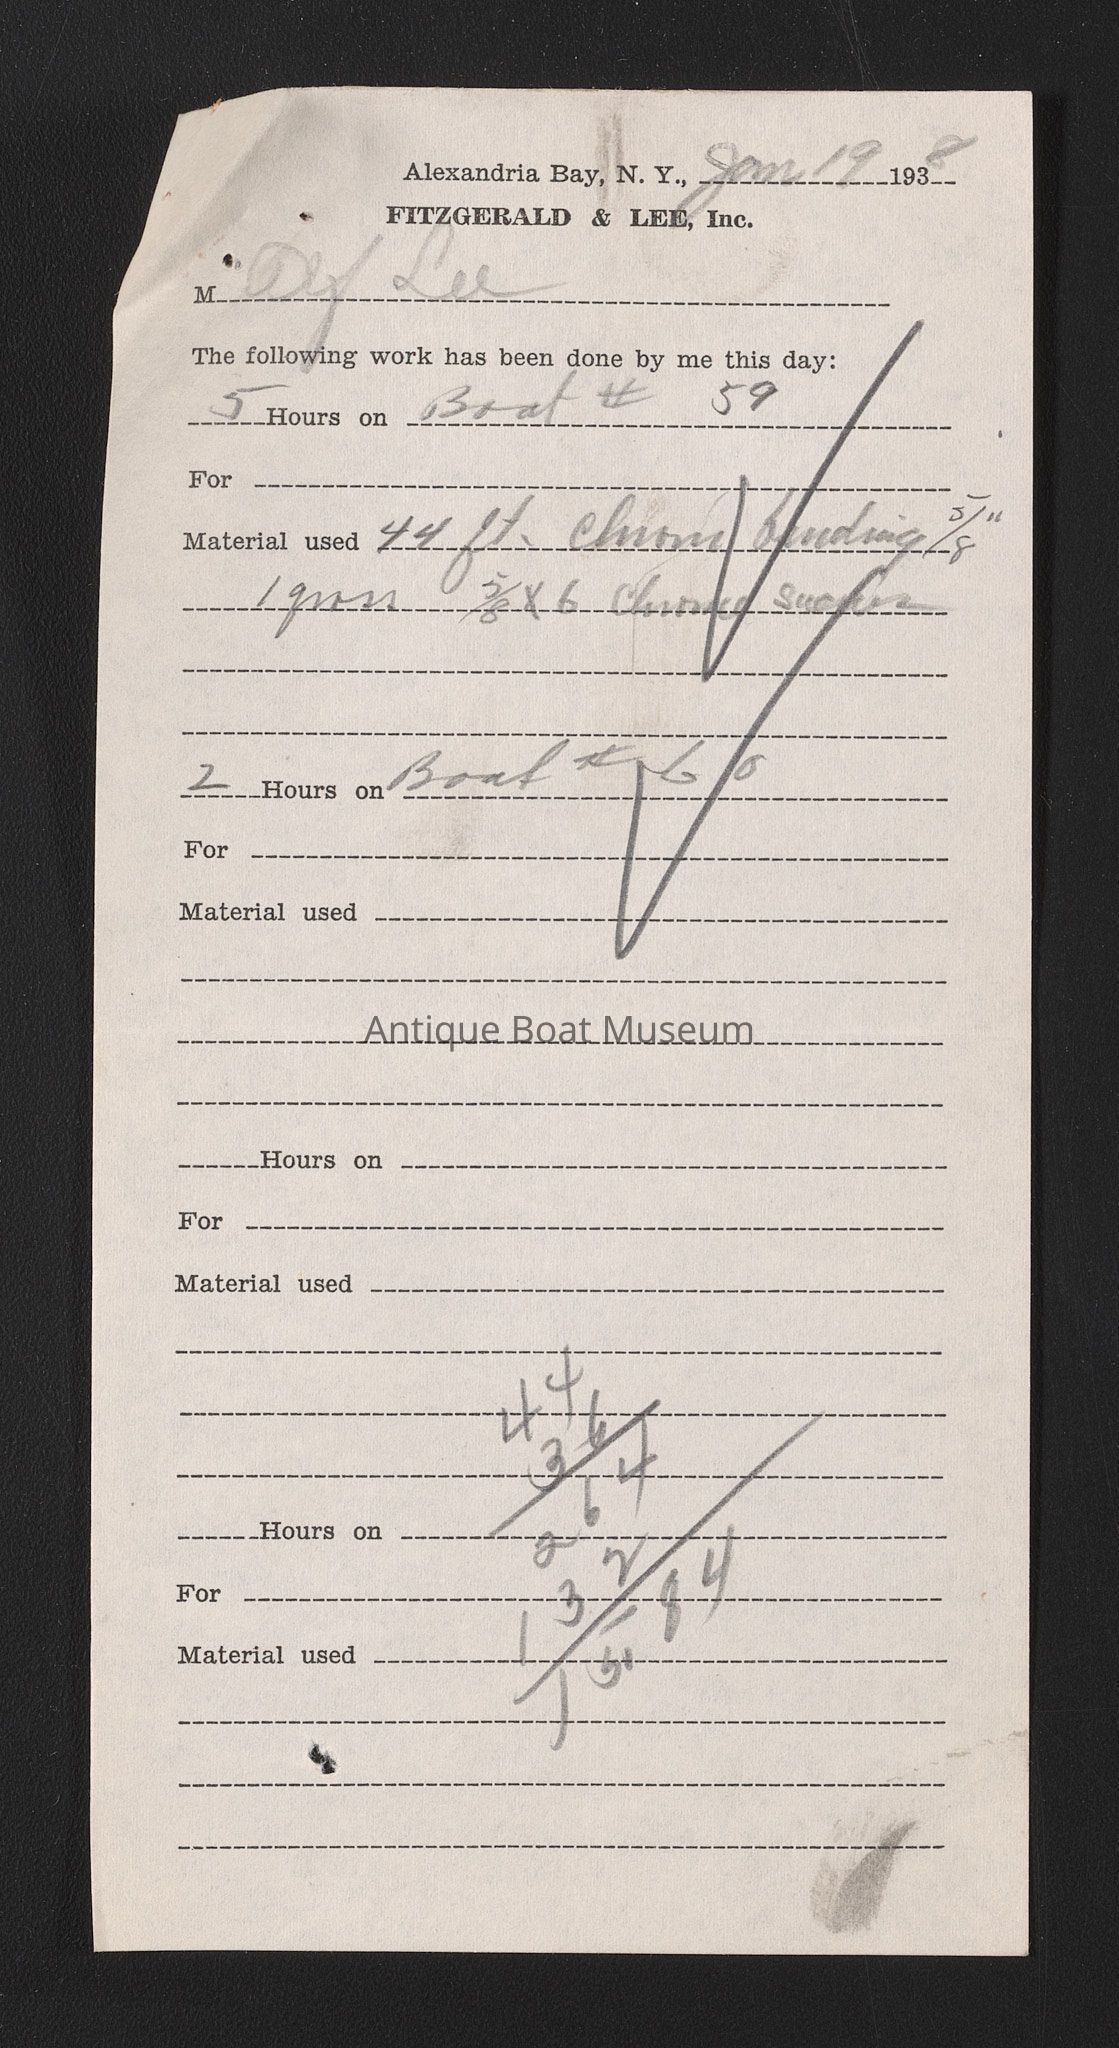 Alexandria Bay, N. Y., Jan 19 1938
FITZGERALD & LEE, Inc.
M Alf Lee
The following work has been done by me this day:
5 Hours on Boat # 59
For
Material used 44 ft. chrom binding 5/8"
1 gross 5/8 x 6 chrome screws
2 Hours on Boat # 60
For
Material used
Antique Boat Museum
Hours on
For
Material used
44
36
264
Hours on
132
For
1584
Material used